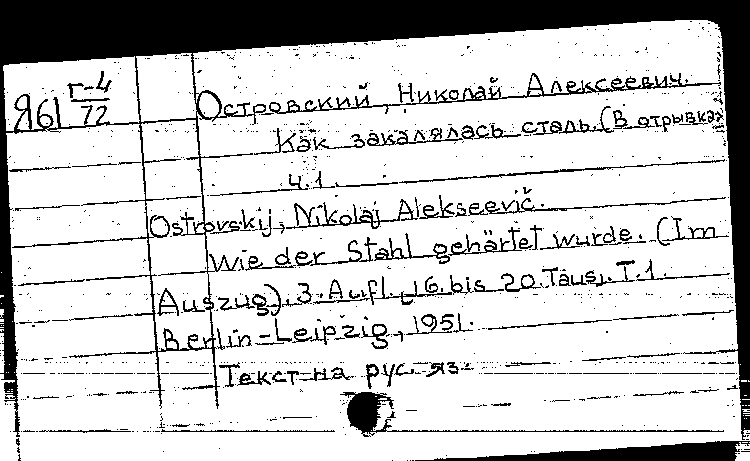 Я61 Г-4/72
Островский, Николай Алексеевич.
Как закалялась сталь. (В отрывках
ч.1.
Ostrovskij, Nikolaj Alekseevič.
Wie der Stahl gehärtet wurde. (Im
Auszug). 3. Aufl., 16. bis 20. Taus. T.1.
Berlin-Leipzig, 1951.
Текст на рус. яз.